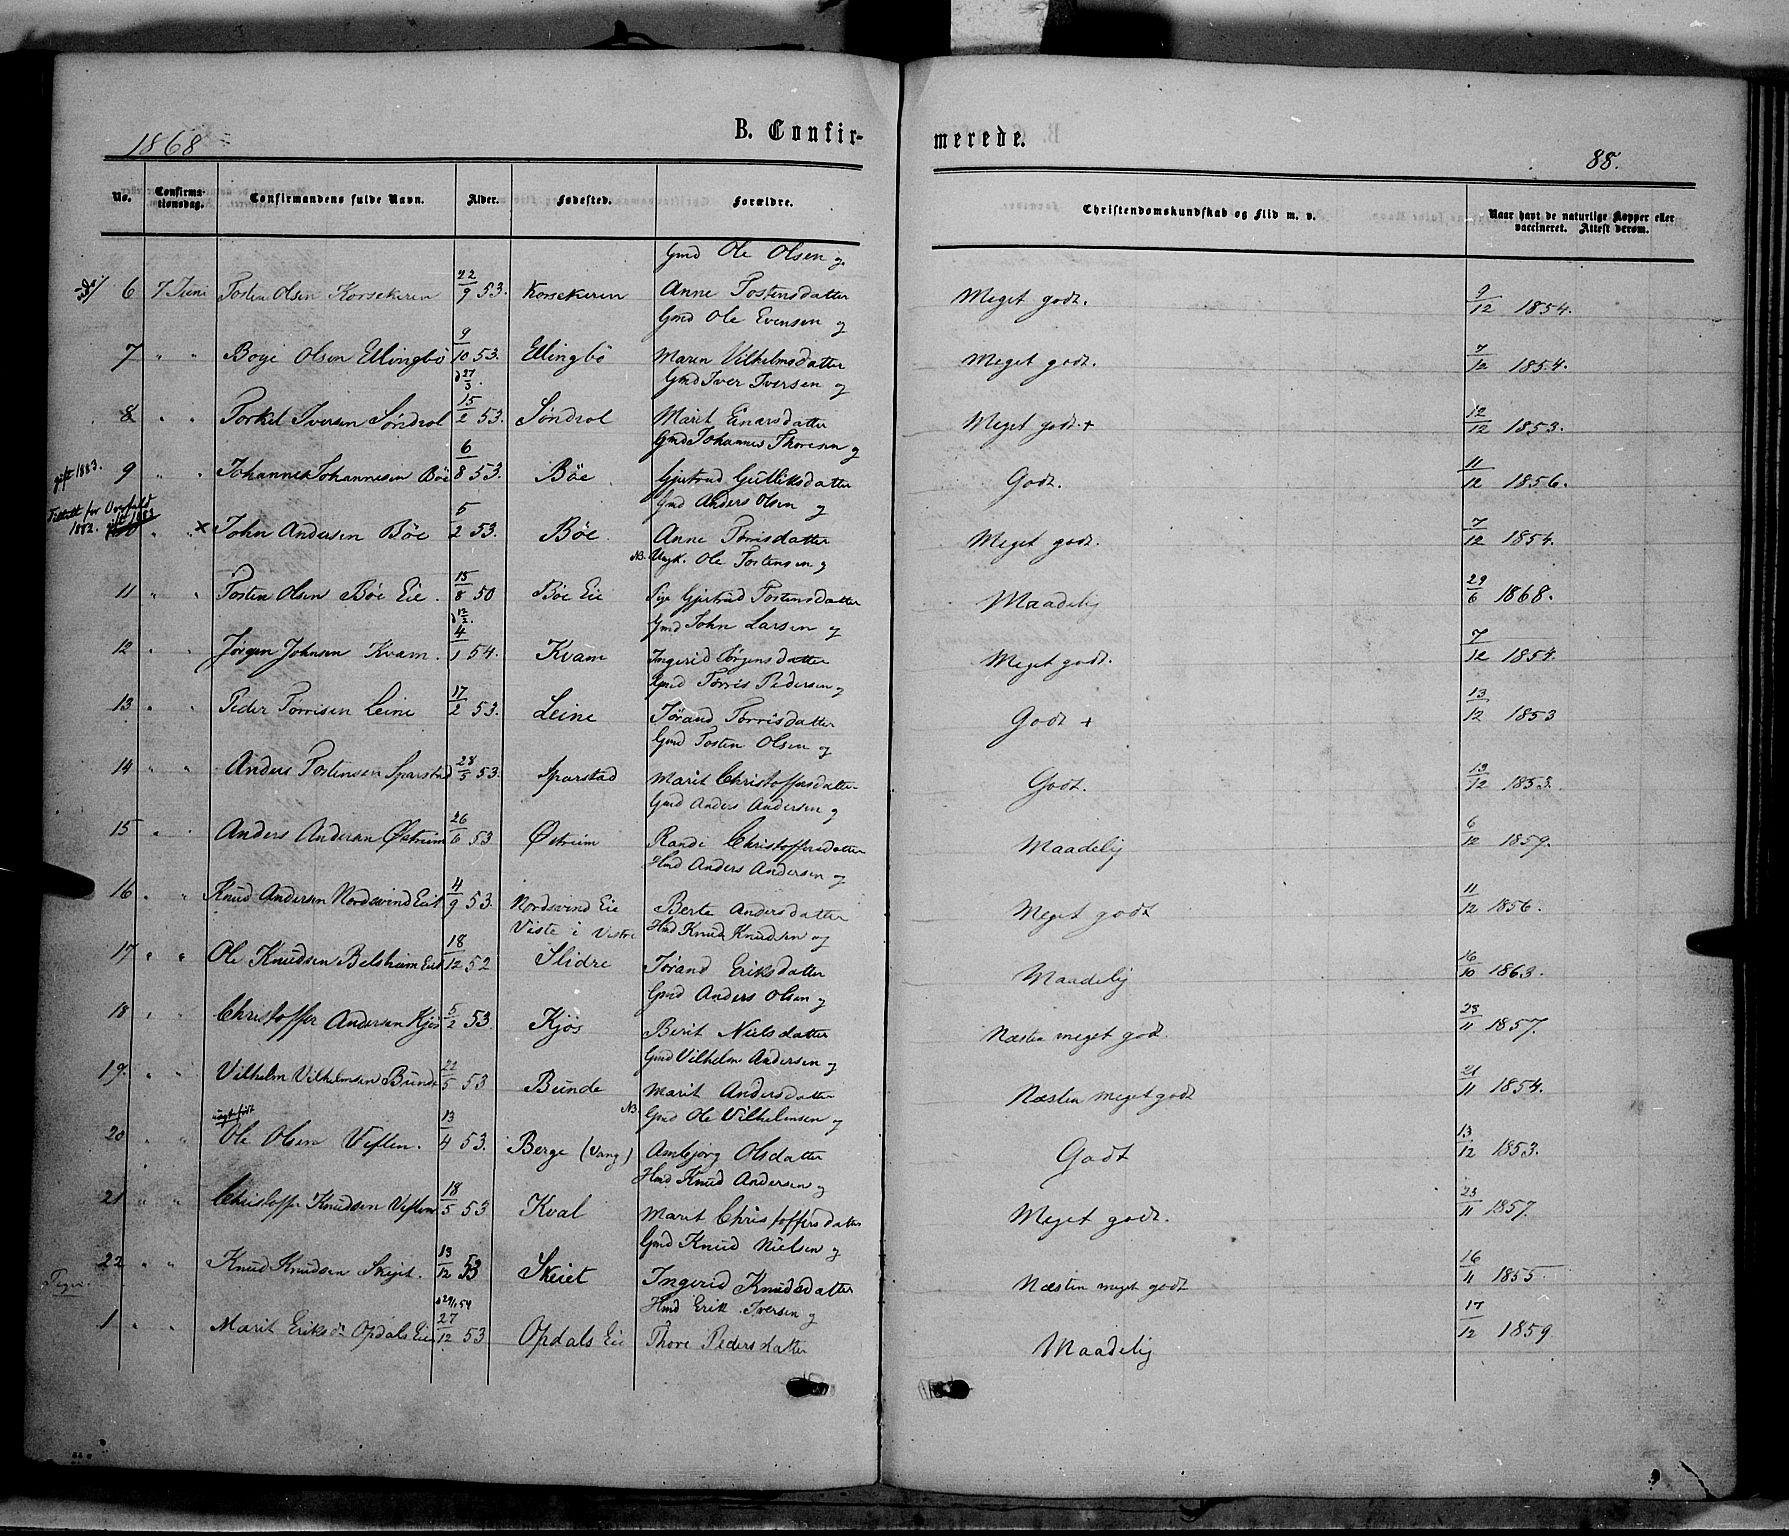 1868
B. Confirmerede.
88.
No. Confirmationsdag. Confirmandens fulde Navn. Alder. Fødested. Forældre. Christendomskundskab og Flid m. v. Naar havt de naturlige Kopper eller vaccineret. Attest derom.
Gmd Ole Olsen og
6 7 Juni Tosten Olsen Korsekeren 22/9 53. Korsekeren Anne Tostensdatter Meget godt. 9/12 1854.
Gmd Ole Evensen og
7 " " Boye Olsen Ellingbö 9/10 53. Ellingbö Maren Vilhelmsdatter Meget godt. 7/12 1854.
d 27/3. Gmd Iver Iversen og
8 " " Torkel Iversen Söndrol 15/2 53. Söndrol Marit Einarsdatter Meget godt + 12/12 1853.
Gmd Johannes Thoresen og
gift 1883. 9 " " Johannes Johannesen Böe 6/8 53. Böe Gjertrud Gulliksdatter Godt. 11/12 1856.
Gmd Anders Olsen og
1882. " " x John Andersen Böe 5/2 53. Böe. Anne Torrisdatter Meget godt. 7/12 1854.
NB. Ungk. Ole Tostensen og
11 " " Tosten Olsen Böe Eie. 15/8 50 Böe Eie Pige Gjertrud Tostensdatter Maadelig 29/6 1868.
d 12/2. Gmd John Larsen og
12 " " Jörgen Johnsen Kvam. 4/1 54. Kvam Ingerid Jörgensdatter Meget godt. 7/12 1854.
Gmd Torris Pedersen og
13 " " Peder Torrisen Leine 17/2 53. Leine Jörand Torrisdatter Godt + 13/12 1853
Gmd Tosten Olsen og
14 " " Anders Tostensen Sparstad 28/3 53. Sparstad Marit Christoffersdatter Godt. 13/12 1853.
Gmd Anders Andersen og
15 " " Anders Andersen Östrüm 26/6 53 Östrüm Rande Christoffersdatter Maadelig 6/12 1859.
Hmd Anders Andersen og
16 " " Knud Andersen Nordsvind Eie 4/9 53. Nordsvind Eie Berte Andersdatter Meget godt 11/12 1856.
Viste i Vestre Hmd Knud Knudsen og
17 " " Ole Knudsen Belsheim Eie 18/12 52 Slidre Jörand Eriksdatter Maadelig 16/10 1863.
Gmd Anders Olsen og
18 " " Christoffer Andersen Kjös 5/2 53. Kjös Berit Nielsdatter Næsten meget godt. 23/11 1857.
Gmd Vilhelm Andersen og
19. " " Vilhelm Vilhelmsen Bunde 22/5 53 Bunde Marit Andersdatter Næsten meget godt 21/11 1854.
uægte født NB. Gmd Ole Vilhelmsen og
20 " " Ole Olsen Veflen. 13/4 53. Berge (Vang) Ambjörg Olsdatter Godt 13/12 1853.
Hmd Knud Andersen og
21 " " Christoffer Knudsen Veflen 18/5 53 Kval Marit Christoffersdatter Meget godt. 23/11 1857.
Gmd Knud Nielsen og
22 " " Knud Knudsen Skejet. 13/12 53 Skeiet Ingerid Knudsdatter Næsten meget godt 16/11 1855.
Piger. d 29/1 54 Hmd Erik Iversen og
1 " " Marit Eriksd. Opdals Eie 27/12 53 Opdals Eie Thore Pedersdatter Maadelig 17/12 1859